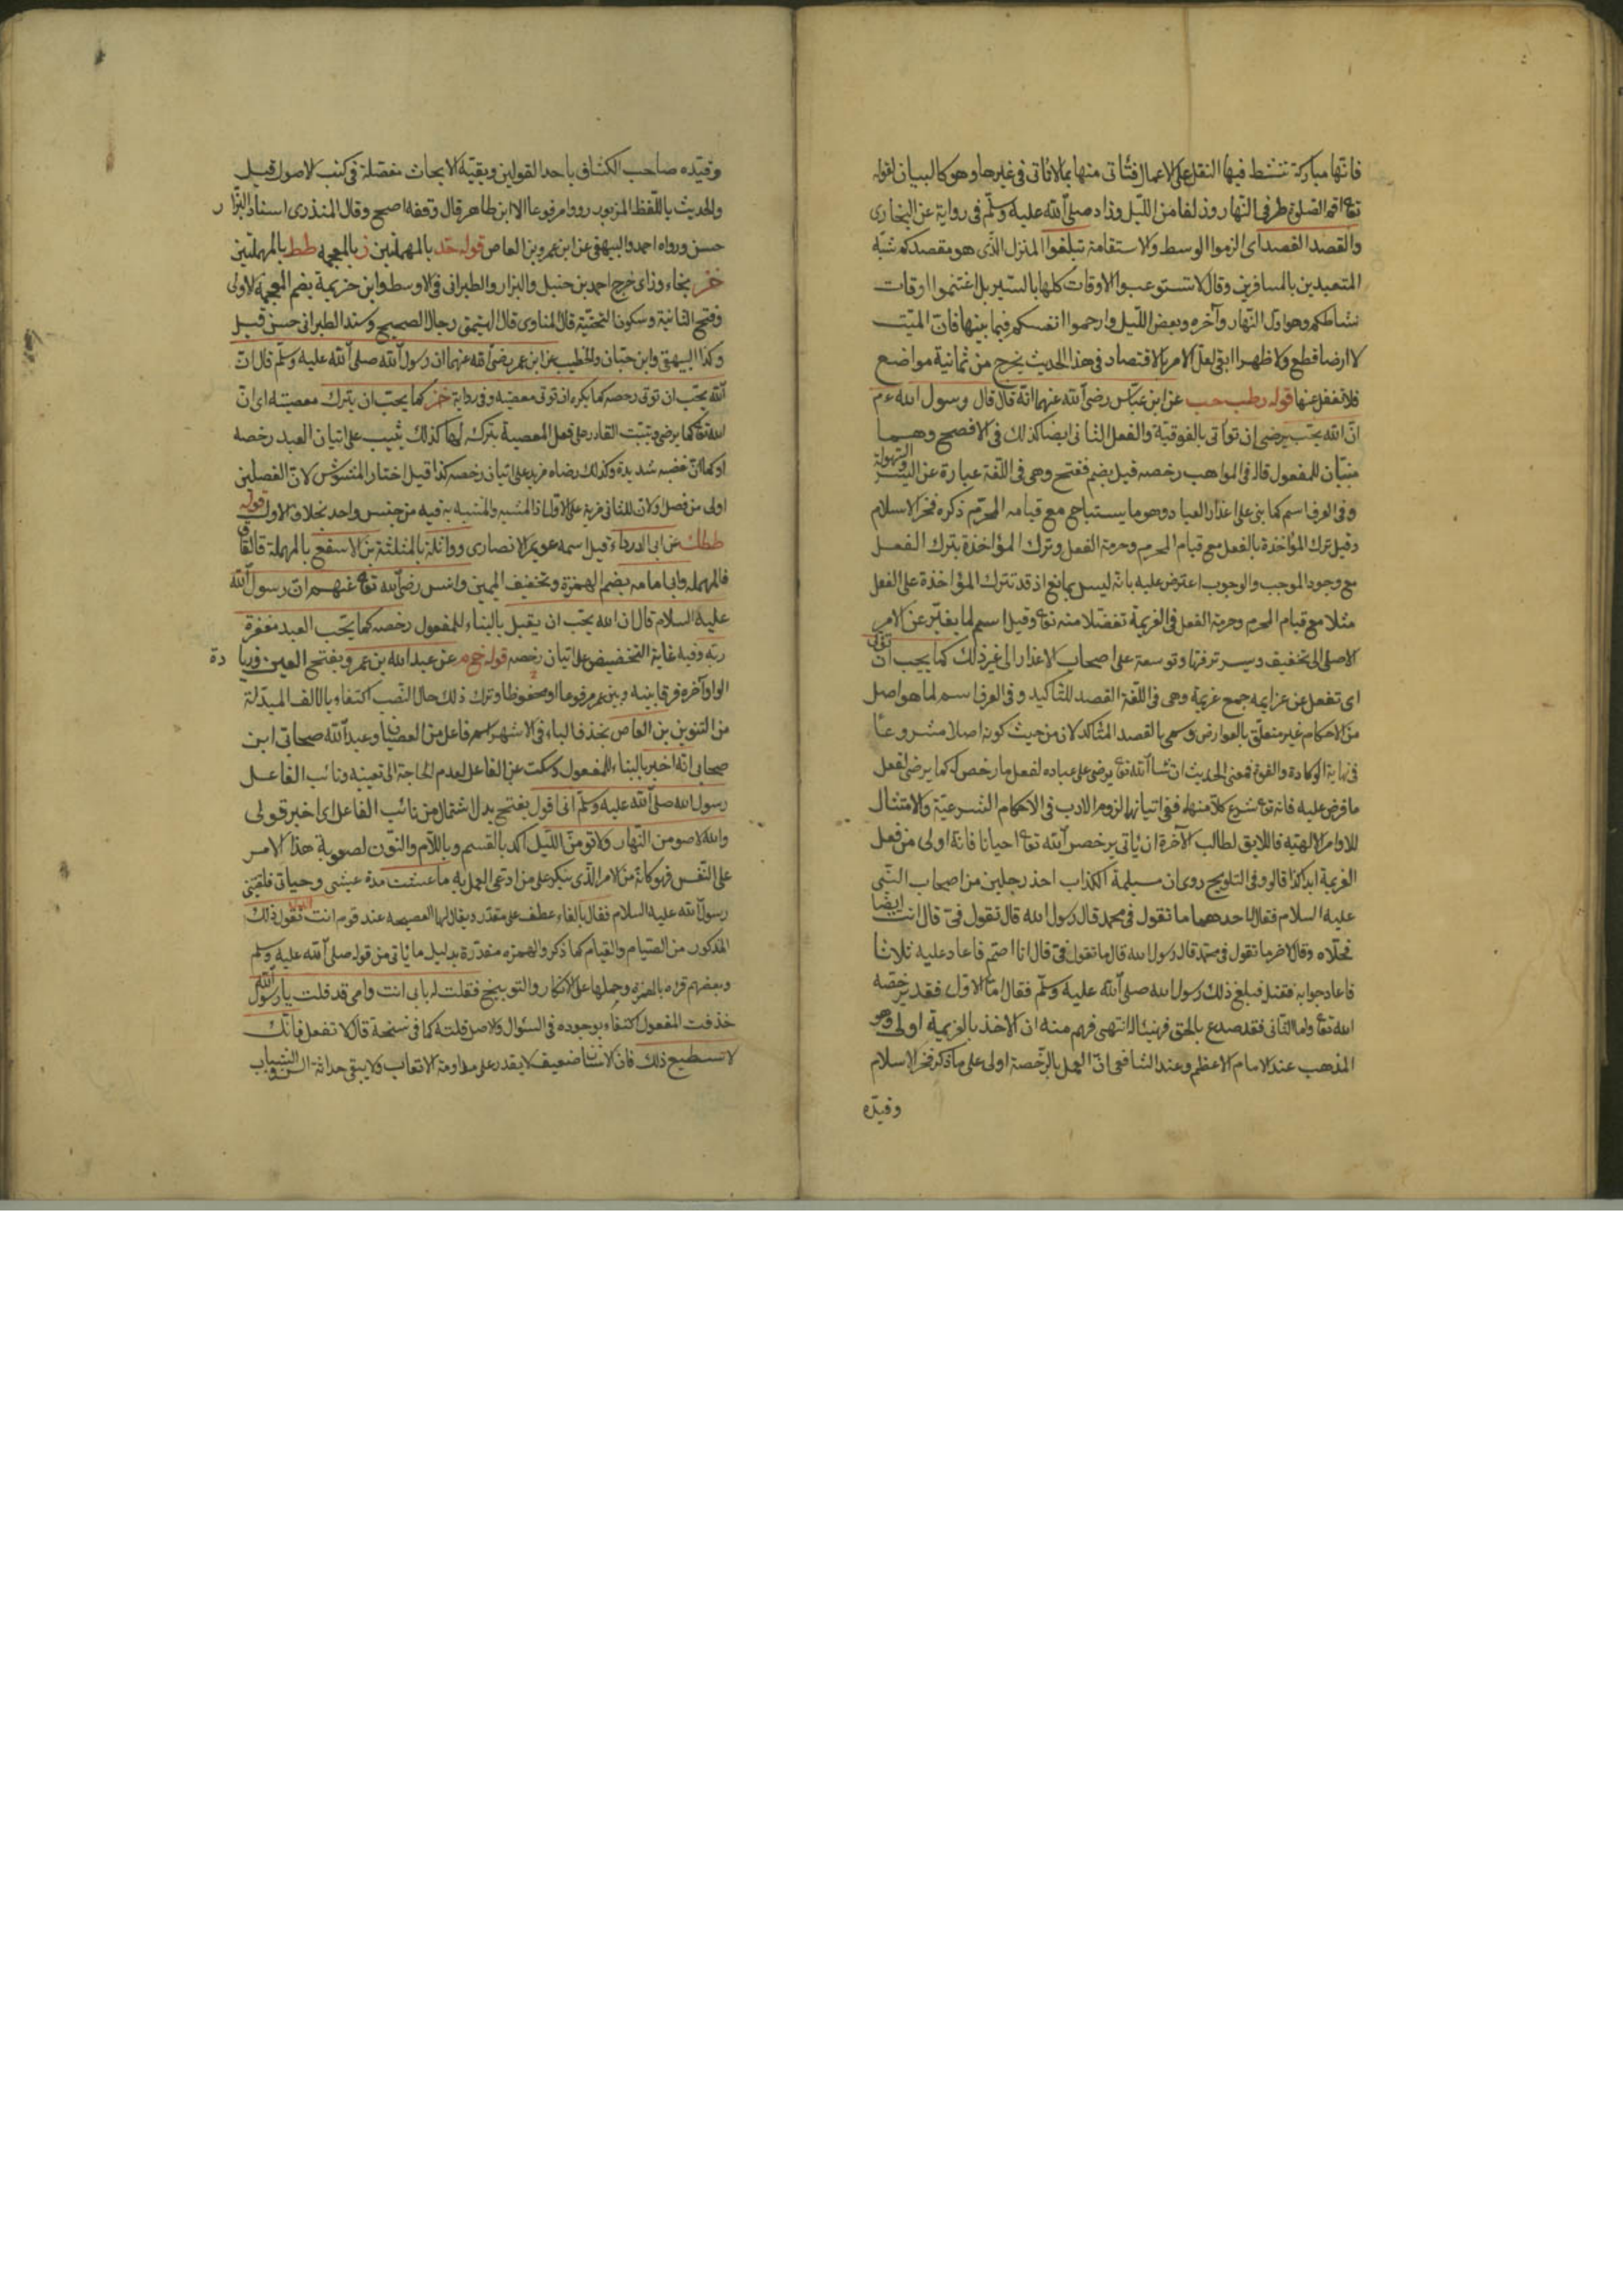 فانها مباركة تنشط فيها النقل على الاعمال فتأتى منها بما لا تأتى فى غيرها وهو كالبيان لقوله
تع اقم الصلوة طرفى النهار وزلفا من الليل وزاد صلى الله عليه وسلم فى رواية عن البخارى
والقصد القصد اى الزموا الوسط والاستقامة تبلغوا المنزل الذى هو مقصدكم شبه
المتعبدين بالمسافرين وقال لا تستوعبوا الاوقات كلها بالسير بل اغتنموا اوقات
نشاطكم وهو اول النهار وآخره وبعض الليل وارحموا انفسكم فيما بينها فان المنبت
لا ارضا قطع ولا ظهرا ابقى لعل الامر بالاقتصاد فى هذا الحديث يخرج من ثمانية مواضع
فلا تغفل عنها قوله رطب حب عن ابن عباس رضى الله عنهما انه قال قال رسول الله ءم
ان الله يحب يرضى ان تؤتى بالفوقية والفعل الثانى ايضا كذلك فى الافصح وهما
مبنيان للمفعول قاله فى المواهب رخصه قيل بضم ففتح وهى فى اللغة عبارة عن اليسر والسهولة
وفى العرف اسم كما بنى على اعذار العباد وهو ما يستباح مع قيام المحرم ذكره فخر الاسلام
وقيل ترك المؤاخذة بالفعل مع قيام المحرم وحرمة الفعل وترك المؤاخذة بترك الفعل
مع وجود الموجب والوجوب اعترض عليه بانه ليس بمانع اذ قد تترك المؤاخذة على الفعل
مثلا مع قيام المحرم وحرمة الفعل فى العزيمة تفضلا منه تع وقيل اسم لما يغير عن الامر
الاصلى الى تخفيف ويسر ترفها وتوسعة على اصحاب الاعذار الى غير ذلك كما يحب ان تؤتى
اى تفعل عن عزايمه جمع عزيمة وهى فى اللغة القصد للتأكيد وفى العرف اسم لما هو اصل
من الاحكام غير متعلق بالعوارض وسمى بالقصد المتأكد لان من حيث كونه اصلا مشروعا
فى نهاية الوكادة والقوة فمعنى الحديث ان شاء الله تع يرضى على عباده لفعل ما رخص له كما يرضى لفعل
ما فرض عليه فانه تع شرع كلا منهما ففى اتيانها لزوم الادب فى الاحكام الشرعية والامتثال
للاوامر الالهية فاللايق لطالب الآخرة ان يأتى برخص الله تع احيانا فانه اولى من فعل
العزيمة ابدا كذا قالوا وفى التلويح روى ان مسيلمة الكذاب اخذ رجلين من اصحاب النبى
عليه السلام فقال لاحدهما ما تقول فى محمد قال رسول الله قال تقول فى قال انت ايضا
فخلاه وقال لآخر ما تقول فى محمد قال رسول الله قال ما تقول فى قال انا اصم فاعاد عليه ثلاثا
فاعاد جوابه فقتل فبلغ ذلك رسول الله صلى الله عليه وسلم فقال اما الاول فقد برخصه
الله تع واما الثانى فقد صدع بالحق فهنيئا له انتهى فهم منه ان الاخذ بالعزيمة اولى وهو
المذهب عند الامام الاعظم وعند الشافعى ان العمل بالرخصة اولى على ما ذكر فخر الاسلام
وقيده
وقيده صاحب الكشاف باحد القولين وبقية الابحاث مفصلة فى كتب الاصول قيل
والحديث باللفظ المزبور رووا مرفوعا الا ابن طاهر قال وقفه اصح وقال المنذرى اسناد البزار
حسن ورواه احمد والبيهقى عن ابن عمرو بن العاص قوله حد بالمهملتين ز بالمعجمه طط بالمهملتين
خز بخاء وزاى خرج احمد بن حنبل والبزار والطبرانى فى الاوسط وابن خزيمة بضم المعجمة الاولى
وفتح الثانية وسكون التحتية قال المناوى قال الهيثمى رجال الصحيح وسند الطبرانى حسن قيل
وكذا البيهقى وابن حبان والخطيب عن ابن عمر رضى الله عنهما ان رسول الله صلى الله عليه وسلم قال ان
الله يحب ان تؤتى رخصه كما يكره ان تؤتى معصيته وفى رواية خز كما يحب ان يترك معصيته اى ان
الله تع كما يرضى ويثبت القادر على فعل المعصية بتركه لها كذلك يثيب على اتيان العبد رخصه
او كما ان غضبه شديدة وكذلك رضاه مزيد على اتيان رخصه كذا قيل اختار المشوش لان الفصلين
اولى من فصل ولان للثانى مزية على الاول اذ المشبه والمشبه به فيه من جنس واحد بخلاف الاول قوله
ططك عن ابى الدرداء قيل اسمه عويمر الانصارى وواثلة بالمثلثة بن الاسقع بالمهملة قالقاف
فالمهملة وابا مامه بضم الهمزة وتخفيف الميمين وانس رضى الله تع عنهم ان رسول الله
عليه السلام قال ان الله يحب ان يقبل بالبناء للمفعول رخصه كما يحب العبد مغفرة
ربه وفيه غاية التخضيض على اتيان رخصه قوله خ م عن عبد الله بن عمرو بفتح العين وزيادة
الواو آخره فرقا بينه وبين عمر مرفوعا او محفوظا وترك ذلك حال النصب اكتفاء بالالف المبدلة
من التنوين بن العاص بحذف الياء فى الاشهر اسم فاعل من العصيان وعبد الله صحابى ابن
صحابى انه اخبر بالبناء للمفعول وسكت عن الفاعل لعدم الحاجة الى تعيينه ونائب الفاعل
رسول الله صلى الله عليه وسلم انى اقول بفتح بدل اشتمال من نائب الفاعل اى اخبر قولى
والله لاصومن النهار ولاقومن الليل اكد بالقسم وباللام والنون لصعوبة هذا الامر
على النفس فهو كانه من الامر الذى ينكر على من ادعى العمل به ما عشت مدة عيشى وحياتى فلقينى
رسول الله عليه السلام فقال بالفاء عطف على مقدر ويقال لها الفصيحة عند قوم انت تقول ذلك
المذكور من الصيام والقيام كما ذكر والهمزه مقدرة بدليل ما يأتى من قوله صلى الله عليه وسلم
وبعضهم قراه بالهمزة وحملها على الانكار والتوبيخ فقلت له بابى انت وامى قد قلت يا رسول الله
حذفت المفعول اكتفاء بوجوده فى السؤال والاصل قلته كما فى نسخة قال لا تفعل فانك
لا تستطيع ذلك فان الانسان ضعيف لا يقدر على مداومة الاتعاب ولا يبقى حداثة السن والشباب